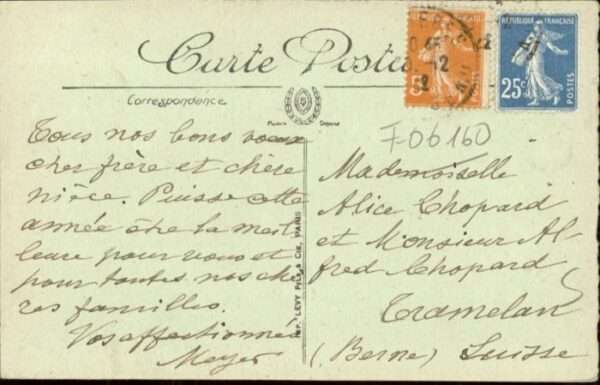 Carte Postale
Correspondance
RÉPUBLIQUE FRANÇAISE
25c
5c
F06160
Tous nos bons voeux
cher frère et chère
nièce. Puisse cette
année être la meil
leure pour vous et
pour toutes nos chè
res familles.
Vos affectionnés
Meyer
IMP. LEVY FILS & CIE, PARIS
Mademoiselle
Alice Chopard
et Monsieur Al-
fred Chopard
Tramelan
(Berne) Suisse